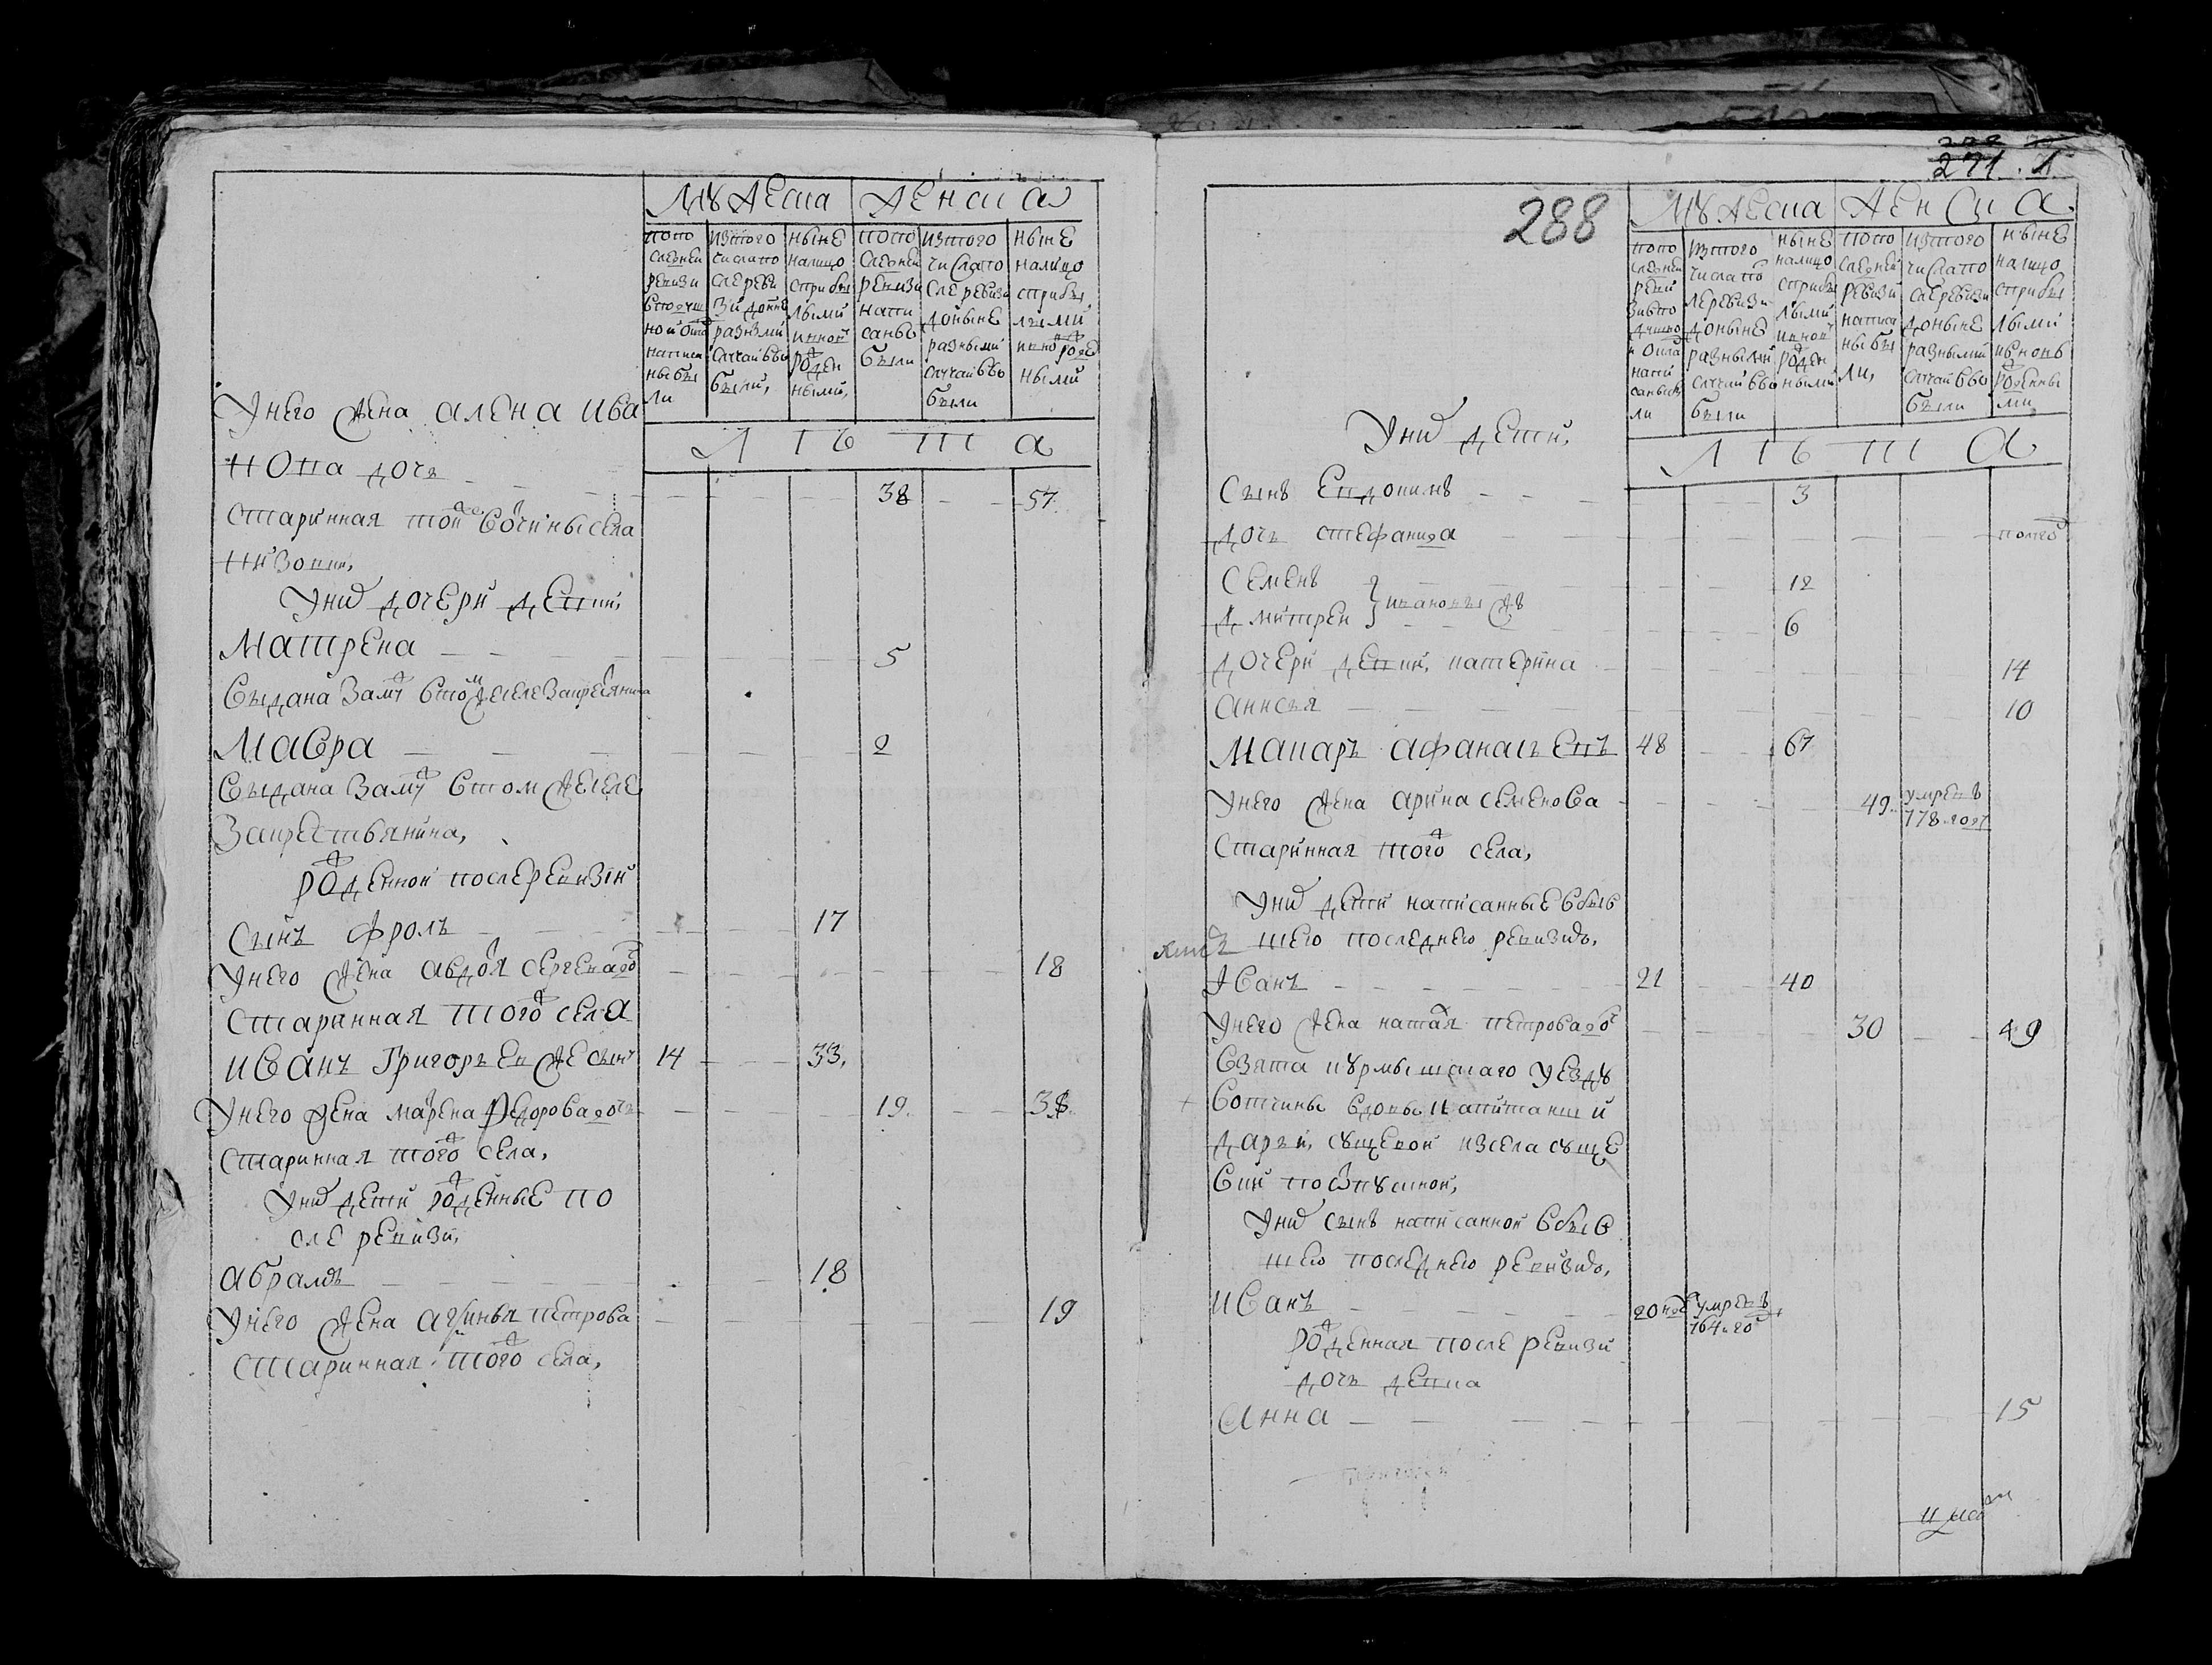 Мужеска Женска
попо следней ревизи вотчиной оша написаны были
изтого числа после ревизии доныне разными случаи выбыли,
ныне налицо сприбылыми вновь рожденными,
попо следней ревизи написаны были
изтого числа после ревизи доныне разными случаи выбыли
ныне налицо сприбылыми вновь рожденными
Лѣта
Унего жена алена ива
нова дочь 38 57
старинная тойже вотчины села
низовки,
Уних дочери девки,
Матрена 5
Выдана замуж втомже селе закрестьянина
Мавра 2
Выдана замуж втом жеселе
Закрестьянина,
рожденной послеревизии
сынъ фролъ 17
Унего жена авдотья сергеева дочь 18
старинная того ж села
иванъ Григорьев же сынъ 14 33,
Унего жена марена Федорова дочь 19. 38.
старинная того ж села,
Уних дети рожденные по
сле ревизи,
абрамъ 18
Унего жена аксинья петрова 19
старинная того ж села,
271.
288
Мужеска Женска
попо следней ревизи
изтого числа после ревизи доныне разными случаи выбыли
ныне налицо сприбылыми вновь рожденными
попо следней ревизи написаны были,
изтого числа после ревизи доныне разными случаи выбыли
ныне налицо сприбылыми вновь рожденными
Лѣта
Уних дети,
Сынъ Евдокимъ 3
дочь стефанида полгод
Семенъ 12
Дмитреи } ивановы ж 6
дочери девки, катерина 14
анисья 10
Макаръ афанасьевъ 48 67
Унего жена арина семенова 49. умре въ 778 году
старинная того ж села,
Уних дети написанные в быв
шею последнею ревизию,
Иванъ 21 40
Унего жена наталья петрова доч 30 49
Взята перемышлскаго уезду
вотчины вдовы капитанши
дарьи, сущевой изсела суще
ва по отпускной,
Уних сынъ написанной в быв
шею последнею ревизию,
иванъ 20 нед умре въ 764 год
рожденная после ревизи
дочь девка
анна 15